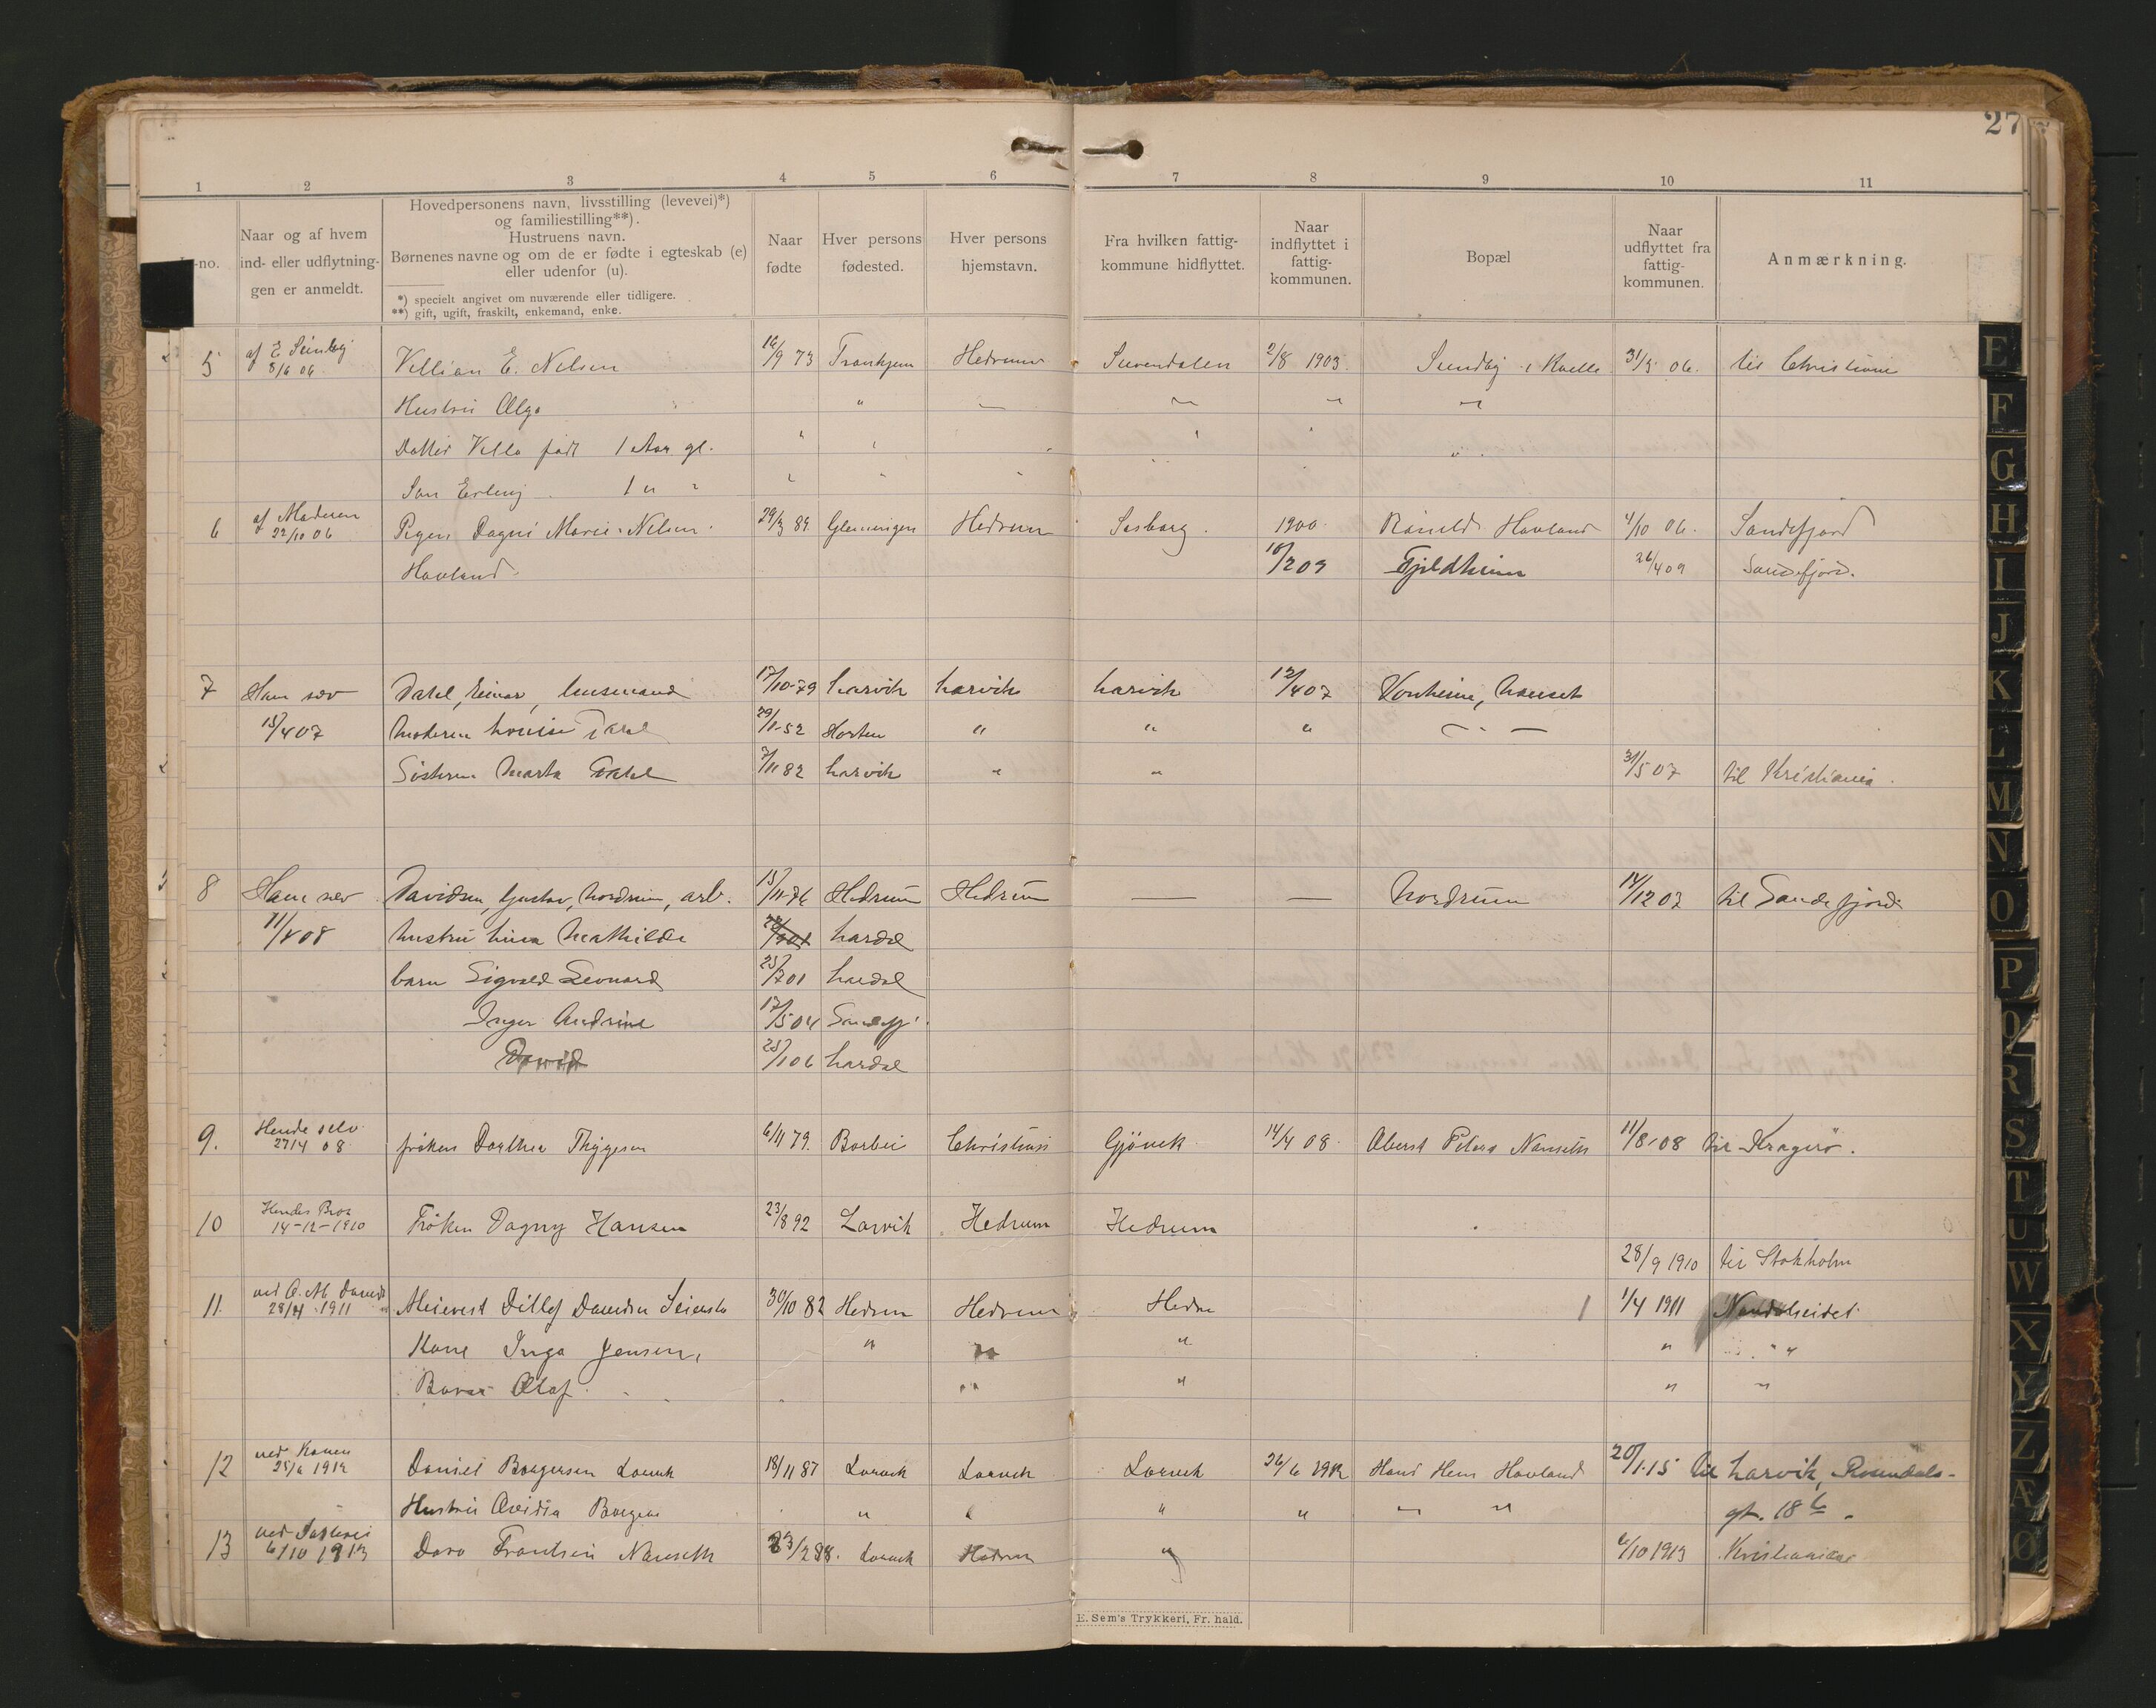 27
1 2 3 4 5 6 7 8 9 10 11
-no.
Naar og af hvem
ind- eller udflytnin-
gen er anmeldt.
Hovedpersonens navn, livsstilling (levevei)*)
og familiestilling**).
Hustruens navn.
Børnenes navne og om de er fødte i egteskab (e)
eller udenfor (u).
*) specielt angivet om nuværende eller tidligere.
**) gift, ugift, fraskilt, enkemand, enke.
Naar
fødte
Hver persons
fødested.
Hver persons
hjemstavn.
Fra hvilken fattig-
kommune hidflyttet.
Naar
indflyttet i
fattig-
kommunen.
Bopæl
Naar
udflyttet fra
fattig-
kommunen.
Anmærkning.
5 af E 8/6 06 Villian E. Nelsen 16/9 73 Tronhjem Hedrum 2/8 1903 Sundby i Kvelle 31/5 06. til Christiania
Hustru Olga " — — " —
Datter Villa født 1 Aar gl. " " " "
Søn Erling 1 " " " "
6 af Moderen 22/10 06 Pigen Dagni Marie Nelsen 29/3 89 Glemmigen Hedrum Sasborg 1900 Hovland 4/10 06. Sandefjord
Hovland 10/2 09 Fjeldheim 26/4 09 Sandefjord.
7 Ham selv Dahl, Einar, 17/10-79 Larvik Larvik Larvik 12/4 07 Nanset
15/4 07 Moderen Louise Dahl 29/1-52 Horten " " " — " —
Sisteren Marta Dahl 7/11 82 Larvik " " 31/5 07 til Kristiania.
8 Ham selv Davidsen, Gustav, Nordrum, arb. 15/11-76 Hedrum Hedrum — — Nordrum 14/12 07 til Sandefjord
11/4 08 hustru Lina Mathilde Lardal
barn Sigvald Leonard 23/7 01 Lardal
Inger Andrine 17/5 04 Sandefj.
David 25/1 06 Lardal
9. Hende selv 27/4 08 frøken Dorthea Thygesen 6/11 79. Barbu Christiania Gjøvik 14/4 08. Oberst Peters Nanseth 11/8-08 til Kragerø.
10 Hendes Bror 14-12-1910 Frøken Dagny Hansen 23/8 92 Larvik Hedrum Hedrum
28/9 1910 til Stokholm
11. ved O. M. 28/4 1911 Meierest Ditlef Davidsen 30/10 82 Hedrum Hedrum Hedru 1/4 1911 Namdalseidet
Kone Inga Jensen, " " " " " "
Barn Olaf " " " "
12 ved Konen 25/6 1912 Daniel Borgersen Larvik 18/11 87 Larvik Larvik Larvik 26/6 1912 Hovland 20/1-15 til Larvik, Rosendals-
Hustru Ovidia Borgers " " " " " " gt. 18 b.
13 ved 6/10 1913 Dora Frantsen Nanseth 23/2 88. Larvik Hedrum " 6/10 1913 Kristiania
E. Sem's Trykkeri, Fr. hald.
E
F
G
H
I
J
K
L
M
N
O
P
Q
R
S
T
U
W
X
Y
Z
Æ
Ø